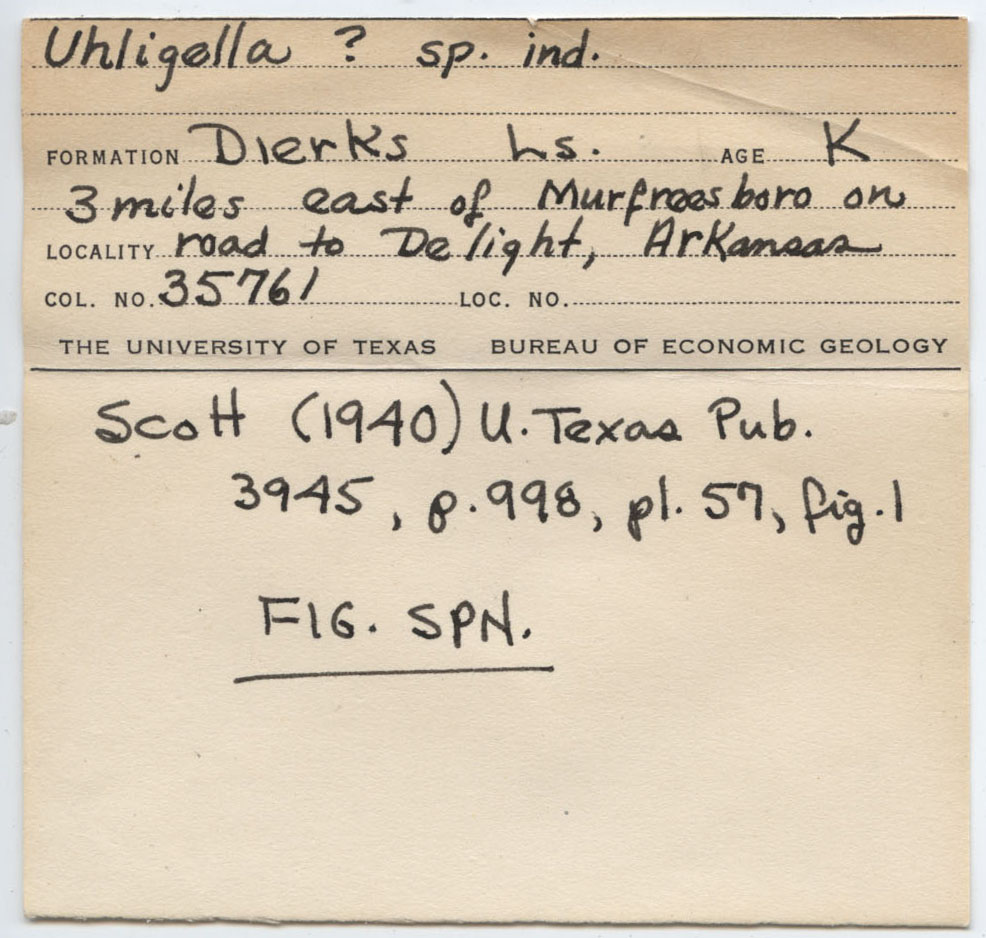 Uhligella ? sp. ind.
FORMATION Dierks Ls. AGE K
3 miles east of Murfreesboro on
LOCALITY road to Delight, Arkansas
COL. NO. 35761 LOC. NO.
THE UNIVERSITY OF TEXAS BUREAU OF ECONOMIC GEOLOGY
Scott (1940) U. Texas Pub.
3945, p. 998, pl. 57, fig. 1
FIG. SPN.